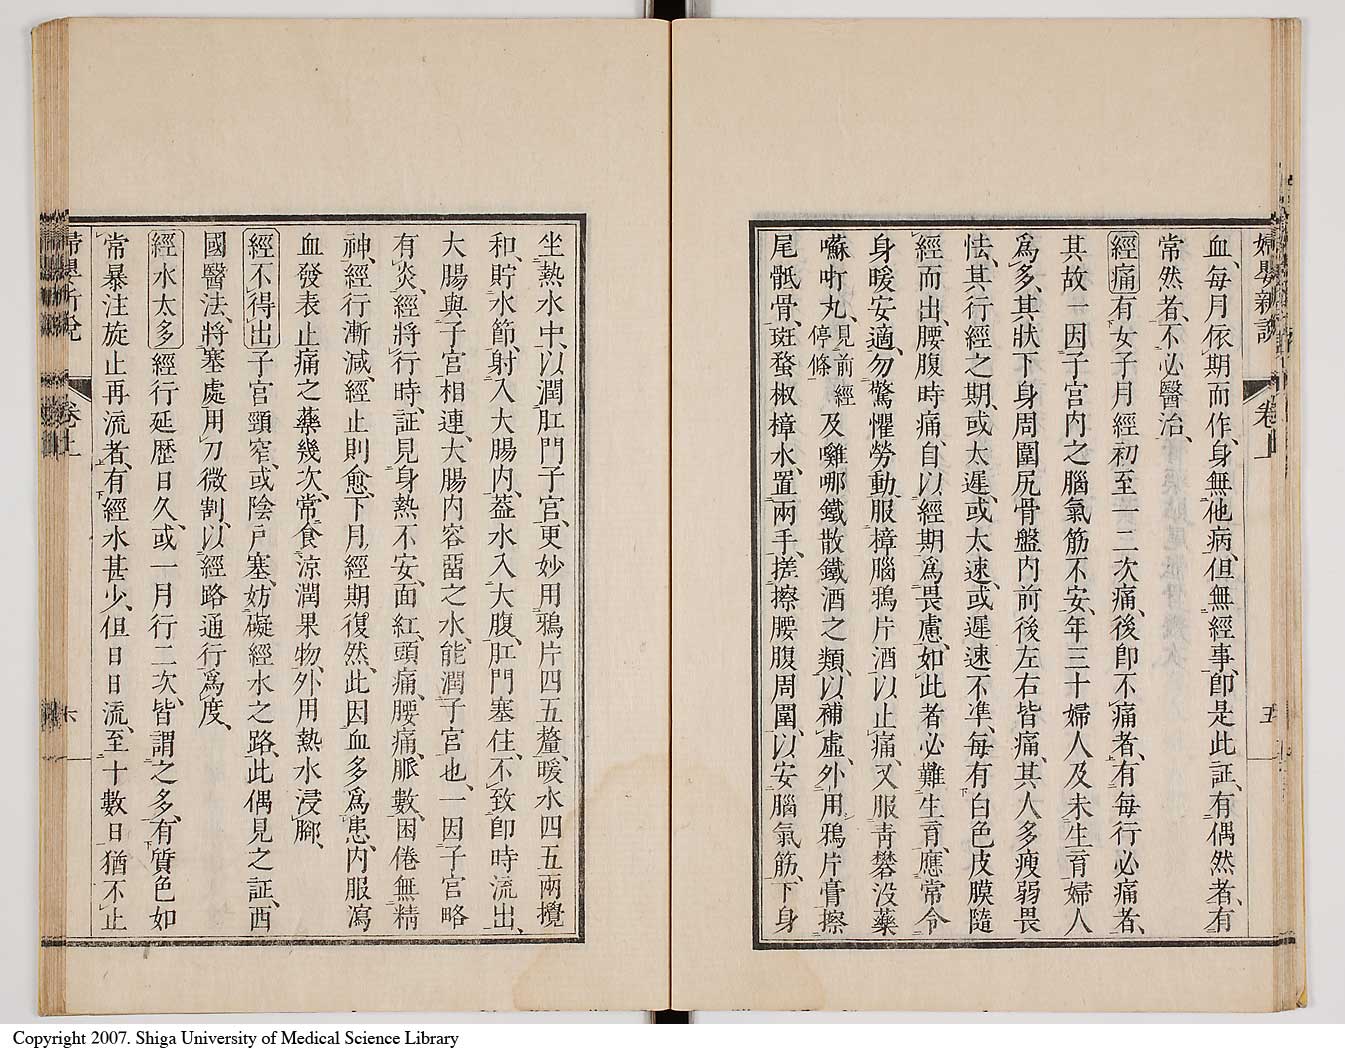 婦嬰新說
卷上
五
血、每月依期而作、身無他病、但無經事、卽是此証、有偶然者、有
常然者、不必醫治、
經痛有女子月經初至一二次痛、後卽不痛者、有每行必痛者、
其故一因子宮內之腦氣筋不安、年三十婦人及未生育婦人
爲多、其狀下身周圍尻骨盤內前後左右皆痛、其人多瘦弱畏
怯、其行經之期、或太遲、或太速、或遲速不準、每有白色皮膜隨
經而出、腰腹時痛、自以經期爲畏慮、如此者必難生育、應常令
身暖安適、勿驚懼勞動、服樟腦鴉片酒以止痛、又服靑礬沒藥
囌叮丸、見前經停條及囄哪鐵散鐵酒之類、以補虛、外用鴉片膏擦
尾骶骨、斑蝥椒樟水、置兩手、搓擦腰腹周圍、以安腦氣筋、下身
坐熱水中、以潤肛門子宮、更妙用鴉片四五釐、暖水四五兩攪
和、貯水節、射入大腸內、葢水入大腹、肛門塞住、不致卽時流出、
大腸與子宮相連、大腸內容畱之水、能潤子宮也、一因子宮略
有炎、經將行時、証見身熱不安、面紅、頭痛、腰痛、脈數、困倦無精
神、經行漸減、經止則愈、下月經期復然、此因血多爲患、內服瀉
血發表止痛之藥幾次、常食涼潤果物、外用熱水浸腳、
經不得出子宮頸窄、或陰戶塞、妨礙經水之路、此偶見之証、西
國醫法、將塞處用刀微割、以經路通行爲度、
經水太多經行延歷日久、或一月行二次、皆謂之多、有質色如
常暴注旋止再流者、有經水甚少、但日日流、至十數日猶不止
卷上
六
Copyright 2007. Shiga University of Medical Science Library